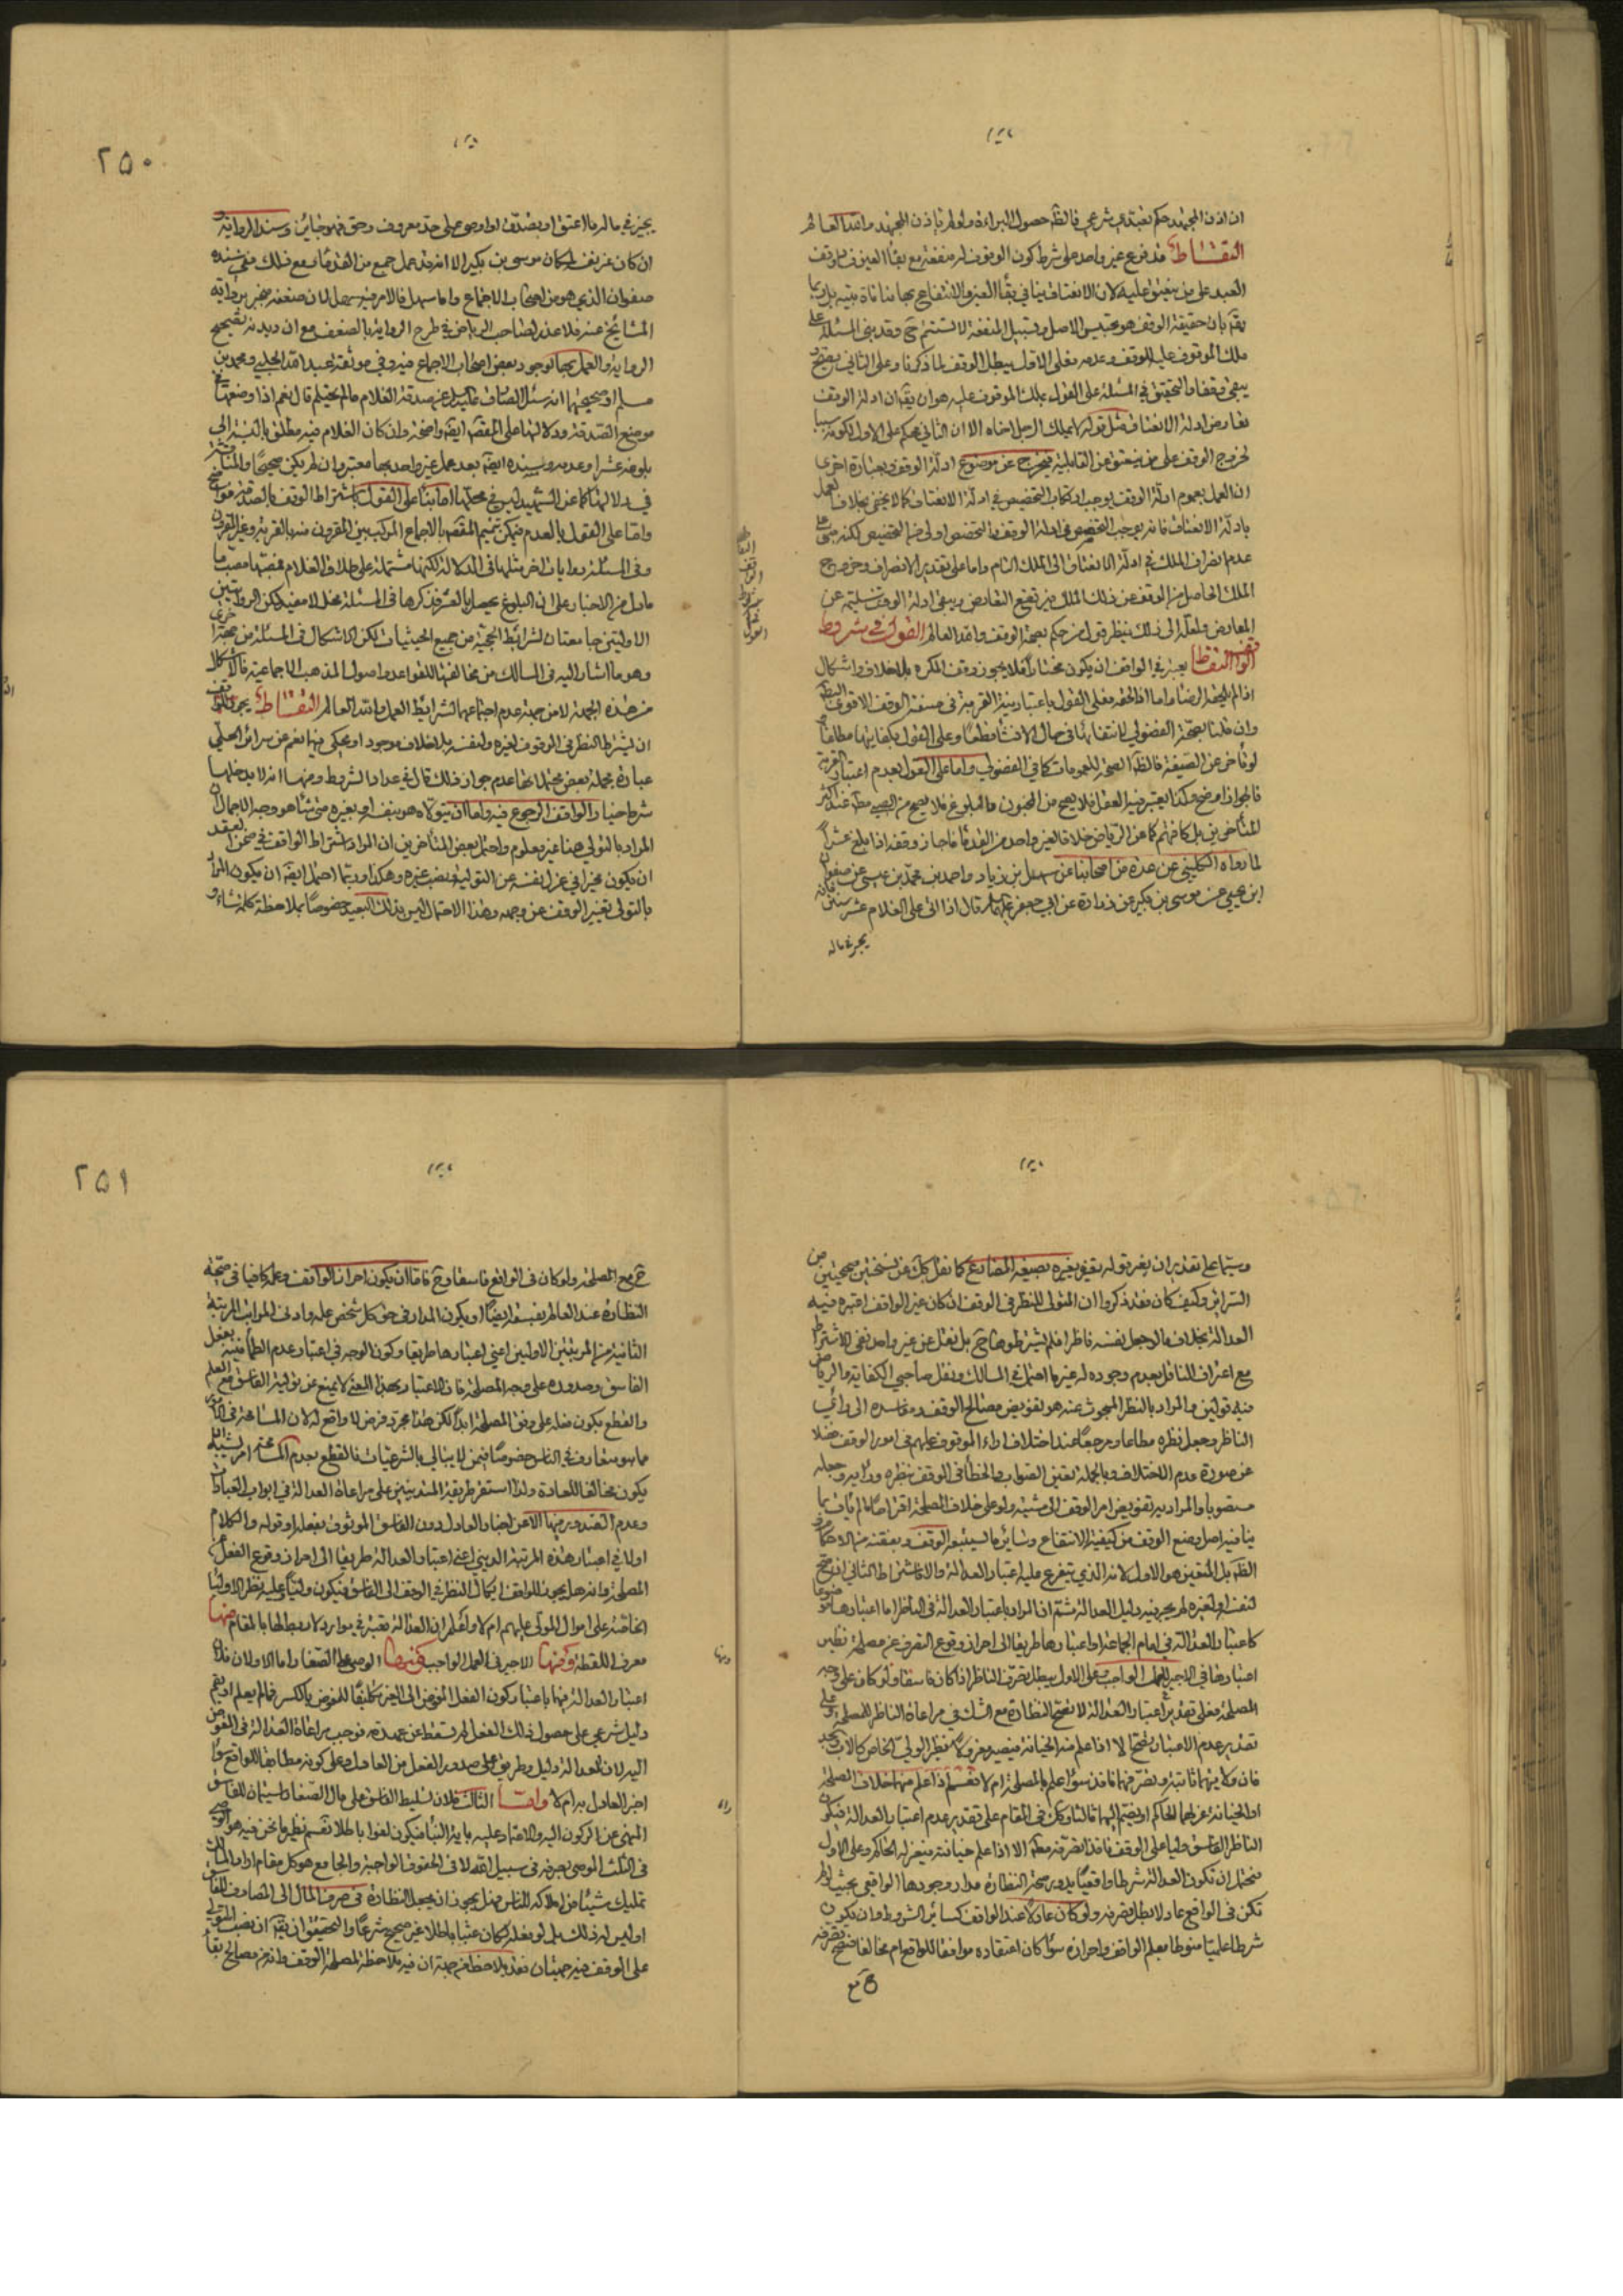 ان اذن المجتهد حكم تعبدي شرعي فالظ حصول البراءة ولو لم ياذن المجتهد والله العالم
التقاط قد فرع غير واحد على شرط كون الموقوف له منفعة مع بقاء العين وقف
العبد على من ينعتق عليه لان الانعتاق ينافي بقاء العين والانتفاع بها
بان حقيقة الوقف هو تحبيس الاصل وتسبيل المنفعة
ملك الموقوف عليه للوقف وعدمه فعلى الاول يبطل الوقف لما ذكرنا وعلى الثاني يصح
يبقى وقفا والتحقيق في المسئلة على القول بملك الموقوف عليه هو ان يقال ان ادلة الوقف
تعارض ادلة الانعتاق مثل قوله لا يملك الرجل اخاه الا ان الثاني حكم على الاول لكونه سببا
لخروج الوقف على من ينعتق من القابلية فيخرج عن موضوع ادلة الوقف وبعبارة اخرى
ان العمل بعموم ادلة الوقف يوجب ارتكاب التخصيص في ادلة الانعتاق كما لا يخفى بخلاف العمل
بادلة الانعتاق فانه يوجب التخصص في ادلة الوقف والتخصص اولى من التخصيص لكنه مبني على
عدم انصراف الملك في ادلة الانعتاق الى الملك التام واما على تقدير الانصراف وخروج
الملك الحاصل من الوقف عن ذلك الملك فيرتفع التعارض ويبقى ادلة الوقف سليمة عن
المعارض ولعله الى ذلك ينظر قول من حكم بصحة الوقف والله العالم القول في شروط
الواقف التقاط يعتبر في الواقف ان يكون مختارا فلا يجوز وقف المكره بلا خلاف واشكال
اذا لم يلحقه الرضا واما اذا لحقه فعلى القول باعتبار نية القربة في صيغة الوقف الاقوى البطلان
وان قلنا بصحة الفضولي لانتفائها في حال الانشاء قطعا وعلى القول بكفايتها مطلقا
لو تأخر عن الصيغة فالظ الصحة للعمومات كما في الفضولي واما على القول بعدم اعتبار القربة
فالجواز اوضح وكذا يعتبر فيه العقل فلا يصح من المجنون والبلوغ فلا يصح من الصبي عند اكثر
المتأخرين بل كافتهم كما عن الرياض خلافا لغير واحد من القدماء فاجازوا وقفه اذا بلغ عشرا
لما رواه الكليني عن عدة من اصحابنا عن سهل بن زياد واحمد بن محمد بن عيسى عن صفوان
ابن يحيى عن موسى بن بكير عن زرارة عن ابي جعفر قال اذا اتى على الغلام عشر سنين فانه
يجوز في ماله
٢٥٠
يجوز في ماله ما اعتق او تصدق او اوصى على حد معروف وحق فهو جائز وسند الرواية و
ان كان غريف لمكان موسى بن بكير الا انه قد عمل جمع من القدماء مع ذلك ففي سنده
صفوان الذي هو من اصحاب الاجماع واما سهل فالامر فيه سهل لان ضعفه منجبر برواية
المشائخ عنه فلا عذر لصاحب الرياض في طرح الرواية بالضعف مع ان ديدنه تصحيح
الرواية والعمل بها لوجود بعض اصحاب الاجماع فيه وفي موثقة عبيد الله الحلبي ومحمد بن
مسلم او صحيحتهما انه سئل الصادق عن صدقة الغلام ما لم يحتلم قال نعم اذا وضعها في
موضع الصدقة ودلالتها على المقص ايض واضحة وان كان الغلام فيه مطلق بالنسبة الى
بلوغه عشرا وعدمه وسنده ايض بعد عمل غير واحد بها معتبر وان لم يكن صحيحا والمناقشة
في دلالتها كما عن الشهيد ليس في محلها
واما على القول بالعدم فيمكن تتميم المقص بالاجماع المركب بين المقرون منه بالقربة وغير المقرون
وفي المسئلة روايات اخر مثلها في الدلالة لكنها مشتملة على طلاق الغلام
ما دل من الاخبار على ان البلوغ يحصل بالعشر فذكرها في المسئلة مخل لا مفيد لكن الروايتين
الاوليتين جامعتان لشرائط الحجية من جميع الحيثيات لكن الاشكال في المسئلة من جهة اخرى
وهو ما اشار اليه في المسالك من مخالفتها للقواعد واصول المذهب الاجماعية فالاشكال
من هذه الجهة لا من جهة عدم اجتماعها لشرائط العمل والله العالم التقاط يجوز للواقف
ان يشترط النظر في الوقف لغيره ولنفسه بلا خلاف موجود او محكي فيها نعم عن سرائر الحلي
عبارة مجملة بعض محتملاتها عدم جواز ذلك قال في عداد الشروط ومنها انه لا يدخلها
شرط خيار الواقف الرجوع فيه ولها ان يتولاه هو بنفسه او بغيره متى شاء هو وجه الاجمال ان
المراد بالتولي هنا غير معلوم واحتمل بعض المتأخرين ان المراد اشتراط الواقف في ضمن العقد
ان يكون مخيرا في عزل نفسه عن التولية ونصب غيره وهكذا وربما احتمل ايض ان يكون المراد
بالتولي تغيير الوقف عن وجهه وهذا الاحتمال ليس بذلك البعيد خصوصا بملاحظة كلمة شاء و
وسيما على تقدير ان يقرء قوله بغيره بصيغة المضارع كما نقل كل عن نسختين صحيحتين من
السرائر وكيف كان فقد ذكروا ان المتولي للنظر في الوقف ان كان غير الواقف اعتبر فيه
العدالة بخلاف ما لو جعل نفسه ناظرا فلم يشترطوها بل نقل عن غير واحد نفي الاشتراط
مع اعتراف الناقل بعدم وجوده لغير ما احتمل في المسالك ونقل صاحبي الكفاية والرياض
فيه قولين والمراد بالنظر المبحوث عنه هو تفويض مصالح الوقف ومفاسده الى رأي
الناظر وجعل نظره مطاعا ومرجعا عند اختلاف اراء الموقوف عليهم في امور الوقف فضلا
عن صورة عدم الاختلاف وبالجملة تعيين الصواب والخطأ في الوقف بنظره ورأيه وجعله
منصوبا والمراد به تفويض امر الوقف الى مشيته ولو على خلاف المصلحة
ينافيه اصل وضع الوقف من كيفية الانتفاع وسائر ما يستتبعه الوقف
الظ بل المتعين هو الاول لانه الذي يتفرع عليه اعتبار العدالة
لنفسه او لغيره لم يجر فيه دليل العدالة ثم ان المراد باعتبار العدالة في الناظر اما اعتبارها موضوعا
كاعتبار العدالة في امام الجماعة او اعتبارها طريقا الى احراز وقوع التصرف عن مصلحة نظير
اعتبارها في الاجير للعمل الواجب فعلى الاول يبطل تصرف الناظر اذا كان فاسقا ولو كان على وجه
المصلحة فعلى تقدير اعتبار العدالة لا تصح النظارة مع الشك في مراعاة الناظر للمصلحة وعلى
تقدير عدم الاعتبار تصح الا اذا علم منه الخيانة فيصير معزولا نظير الولي الخاص كالاب والجد
فان ولايتهما ثابتة وتصرفهما نافذ سواء علم بالمصلحة ام لا نعم اذا علم منهما خلاف المصلحة
او الخيانة عزلهما الحاكم او يضم اليهما ثالثا ويمكن في المقام على تقدير عدم اعتبار العدالة فيكون
الناظر الفاسق وليا على الوقف نافذا تصرفه الا اذا علم خيانته فيعزله الحاكم وعلى الاول
فيحتمل ان تكون العدالة شرطا واقعيا يدور صحة النظارة مدار وجودها الواقعي بحيث لو لم
تكن في الواقع عادلا بطل تصرفه ولو كان عادلا عند الواقف كسائر الشروط وان يكون
شرطا علميا منوطا بعلم الواقف واحرازه سواء كان اعتقاده موافقا للواقع ام مخالفا فيصح تصرفه
ح مع
٢٥١
ح مع المصلحة ولو كان في الواقع فاسقا وح فاما ان يكون احراز الواقف وعلمه كافيا في صحة
النظارة عند العالم بفسقه ايضا او يكون المدار في حق كل شخص علمه وادنى المراتب المرتبة
الثانية من المرتبتين الاوليين اعني اعتبارها طريقا وكون الوجه في اعتبار عدم الطمأنينة بفعل
الفاسق وصدوره على وجه المصلحة فان الاعتبار بهذا المعنى لا يمنع عن تولية الفاسق مع العلم
والقطع بكون فعله على وفق المصلحة ابدا لكن هذا مجرد فرض لا واقع له لان المسامحة في الامور
مما هو متعارف في الناس خصوصا فيمن لا يبالي بالشرعيات فالقطع بعدم المسامحة امر
يكون مخالفا للعادة ولذا استقر طريقة المتدينين على مراعاة العدالة في ابواب العبادات
وعدم التعدي فيها الا عن اخبار العادل دون الفاسق الموثوق بفعله او قوله والكلام
اولا في اعتبار هذه المرتبة الدينى اعني اعتبار العدالة طريقا الى احراز وقوع الفعل على
المصلحة وانه هل يجوز للواقف ايكال النظر في الوقف الى الفاسق فيكون وليا عليه نظير الاولياء
الخاصة على اموال المولى عليهم ام لا ولنعلم ان العدالة تعتبر في موارد لا ربط لها بالمقام منها
معرف اللقطة ومنها الاجير في العمل الواجب ومنها الوصي على الصغار اما الاولان فلان
اعتبار العدالة فيها باعتبار كون الفعل المفوض الى الغير تكليفا للمفوض بالكسر فما لم يعلم او يقم
دليل شرعي على حصول ذلك الفعل لم يسقط عن عهدته فوجب مراعاة العدالة في المفوض
اليه لان للعدالة دليل وطريق على صدور الفعل من العادل وعلى كونه مطابقا للواقع سواء
اخبر العادل به ام لا واما الثالث فلان تسليط الفاسق على مال الصغار استيمان للفاسق
المنهي عن الركون اليه والاعتماد عليه باية النبأ فيكون لغوا باطلا نعم نظير ما نحن فيه هو الوصي
في الثلث الموصى بصرفه في سبيل الله لا في الحقوق الواجبة والجامع هو كل مقام اراد المالك
تمليك شيئا من املاكه للناس فهل يجوز ان يجعل النظارة في صرف المال الى المصارف للفاسق
او ليس له ذلك بل لو فعله كان عبثا باطلا غير صحيح شرعا والتحقيق ان يقال ان نصب المتولي
على الوقف فيه جهتان فقد يلاحظ من جهة ان فيه ملاحظة لمصلحة الوقف وانه من مصالح بقاء